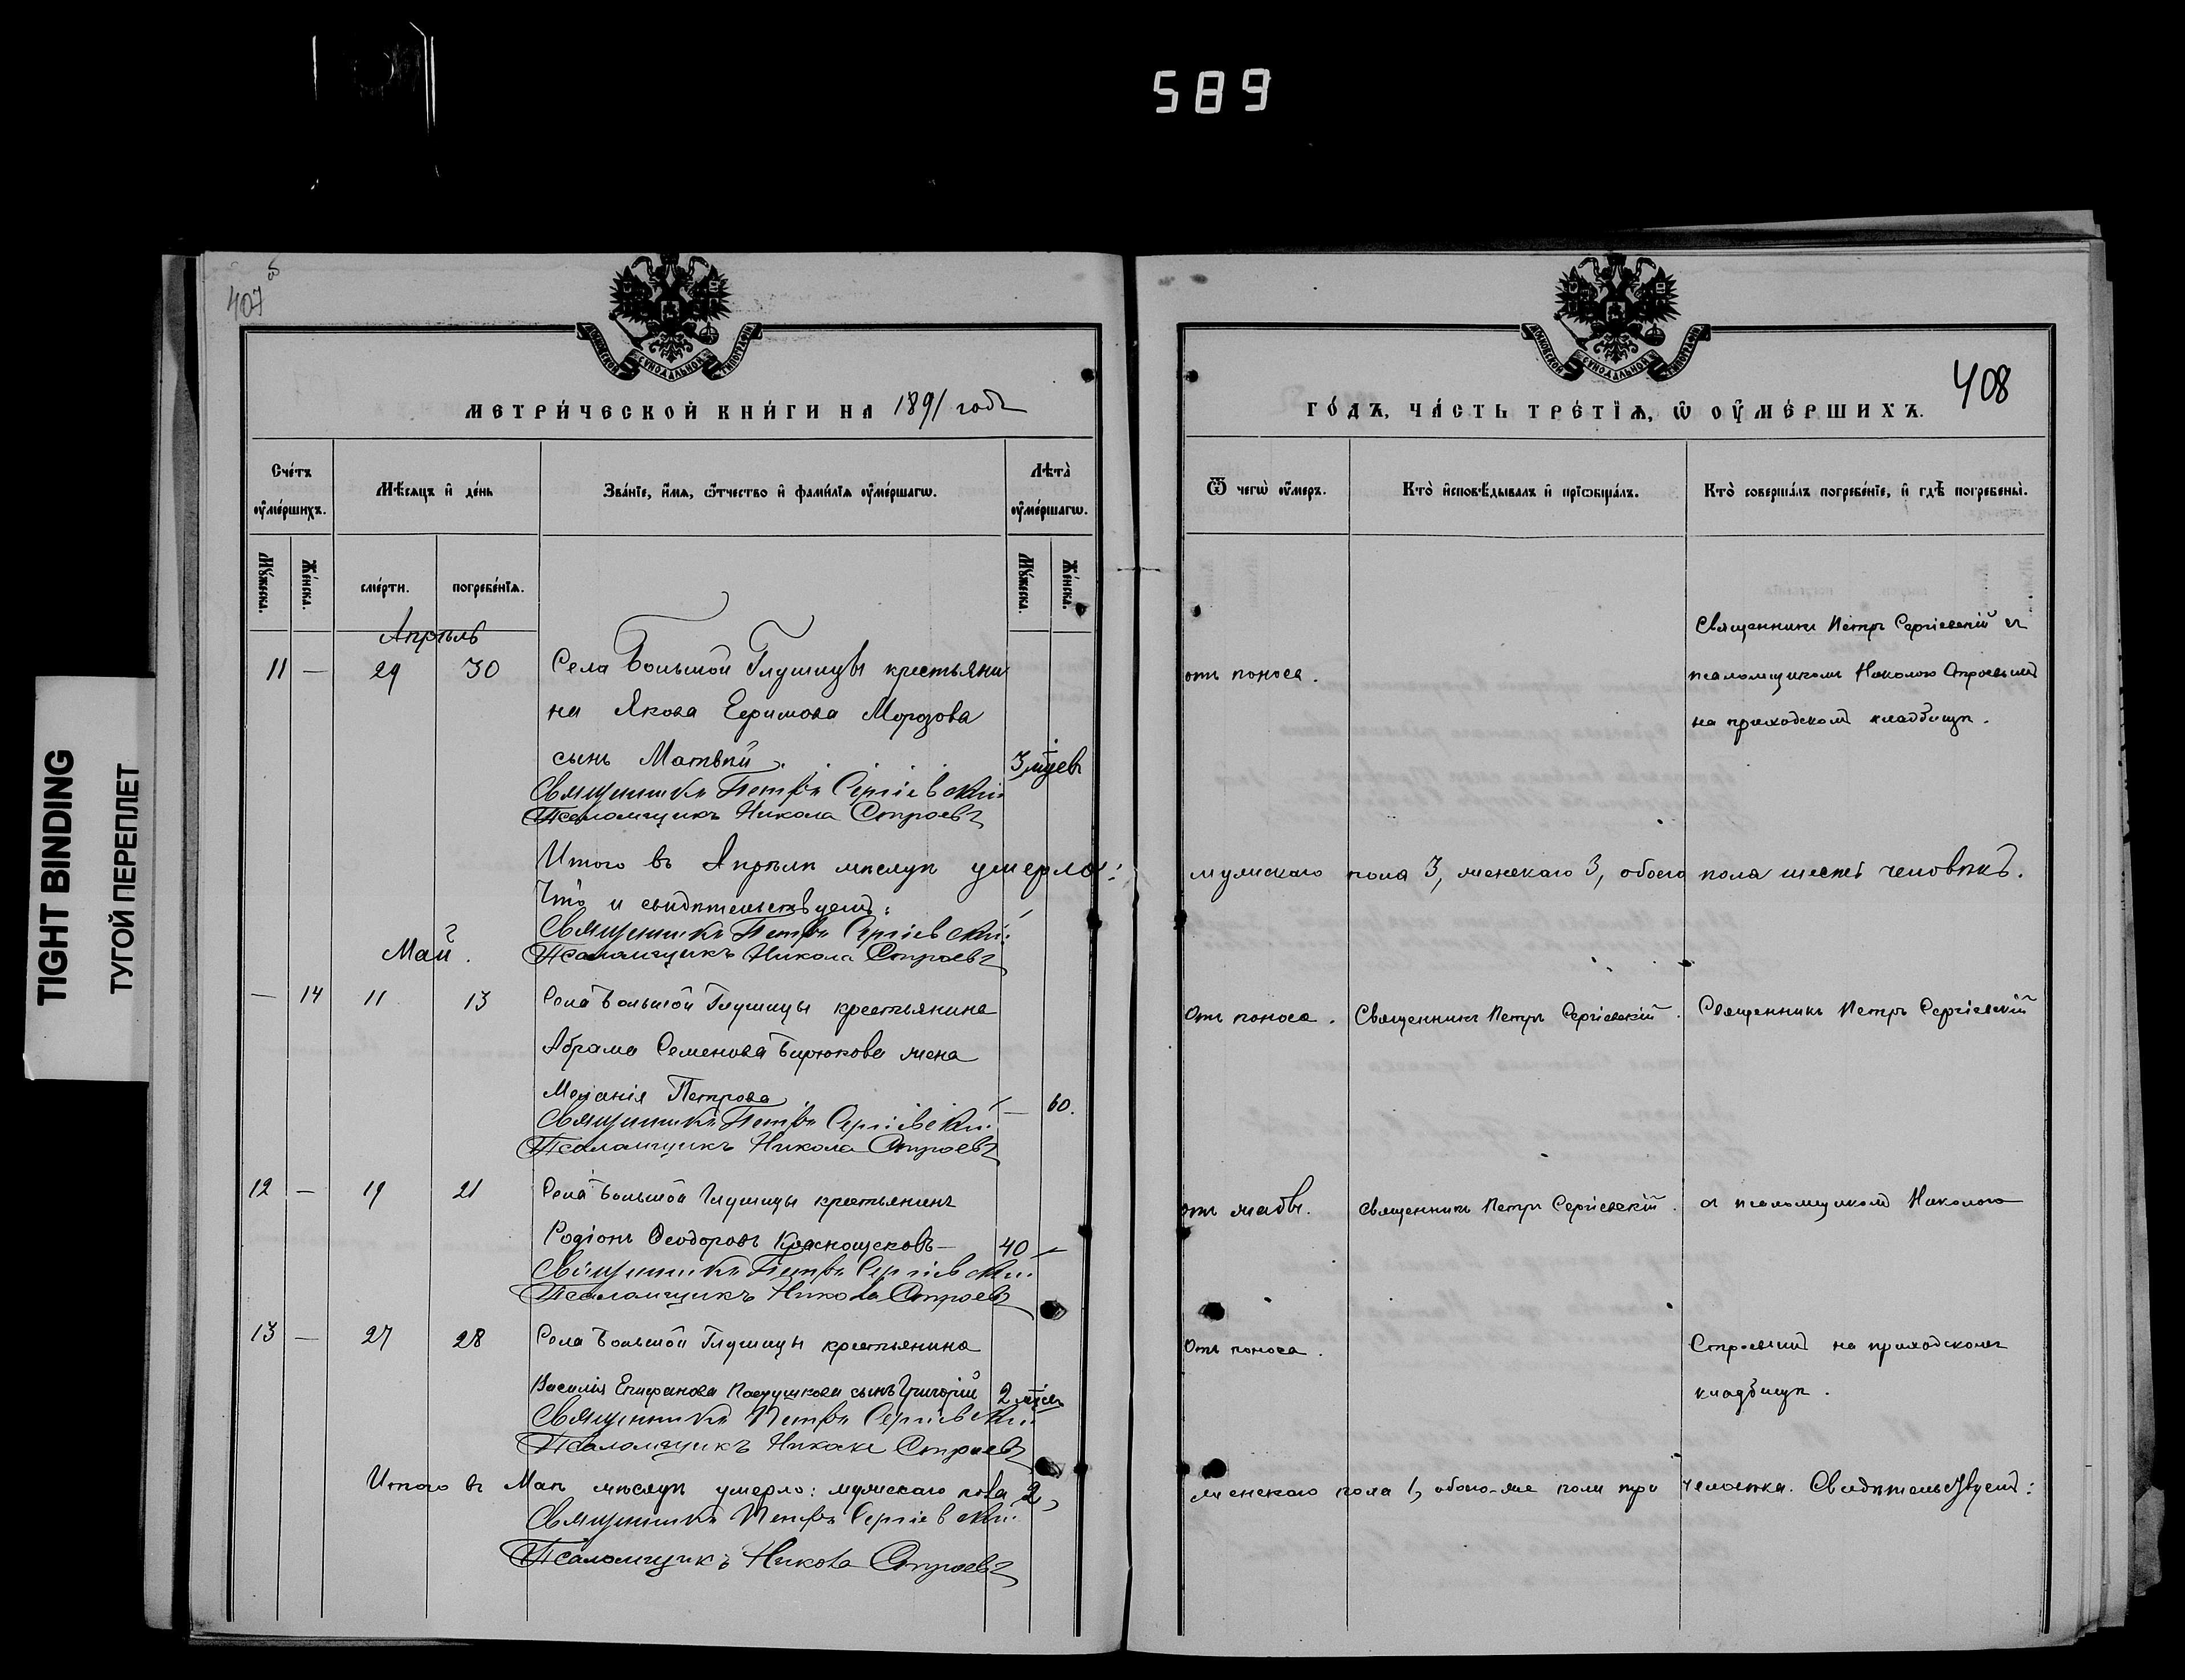 589
TIGHT BINDING
ТУГОЙ ПЕРЕПЛЕТ
407 об
МЕТРИ́ЧЕСКОЙ КНИ́ГИ НА 1891 годъ
Сче́тъ ᲂу҆ме́ршихъ.
Мѣ́сяцъ и҆ де́нь
Зва́нїе, и҆́мѧ, ѻ҆́тчество и҆ фами́лїѧ ᲂу҆ме́ршагѡ.
Лѣта̀ ᲂу҆ме́ршагѡ.
Мꙋ́жеска.
Же́нска.
сме́рти.
погребе́нїѧ.
Мꙋ́жеска.
Же́нска.
Апрѣль
11 — 29 30 Села Большой Глушицы крестьяни
на Якова Ефимова Морозова
сынъ Матвѣй. 3 мцевъ
Священникъ Петръ Сергіевскій
Псаломщикъ Никола Строевъ
Итого въ Апрѣлѣ мѣсяцѣ умерло:
Что и свидѣтельствуемъ:
Священникъ Петръ Сергіевскій
Май. Псаломщикъ Никола Строевъ
— 14 11 13 Села Большой Глушицы крестьянина
Абрама Семенова Бирюкова жена
Меланія Петрова — 60.
Священникъ Петръ Сергіевскій
Псаломщикъ Никола Строевъ
12 — 19 21 Села Большой Глушицы крестьянинъ
Родіонъ Ѳеодоровъ Краснощековъ 40 —
Священникъ Петръ Сергіевскій
Псаломщикъ Никола Строевъ
13 — 27 28 Села Большой Глушицы крестьянина
Василія Епифанова сынъ Григорій 2 мцевъ
Священникъ Петръ Сергіевскій
Псаломщикъ Никола Строевъ
Итого въ Маѣ мѣсяцѣ умерло: мужескаго пола 2,
Священникъ Петръ Сергіевскій
Псаломщикъ Никола Строевъ
408
ГО́ДЪ, ЧА́СТЬ ТРЕ́ТЇѦ, Ѡ҆ ОУ҆МЕ́РШИХЪ.
Ѿ чегѡ̀ ᲂу҆́меръ.
Кто̀ и҆сповѣ́дывалъ и҆ прїѡбща́лъ.
Кто̀ соверша́лъ погребе́нїе, и҆ гдѣ̀ погребены̀.
Священникъ Петръ Сергіевскій съ
отъ поноса. псаломщикомъ Николою Строевымъ
на приходскомъ кладбищѣ.
мужескаго пола 3, женскаго 3, обоего пола шесть человѣкъ.
Отъ поноса. Священникъ Петръ Сергіевскій. Священникъ Петръ Сергіевскій
отъ жабы. Священникъ Петръ Сергіевскій. съ псаломщикомъ Николою
Отъ поноса. Строевымъ на приходскомъ
кладбищѣ.
женскаго пола 1, обоего-же пола три человѣка. Свидѣтельствуемъ: